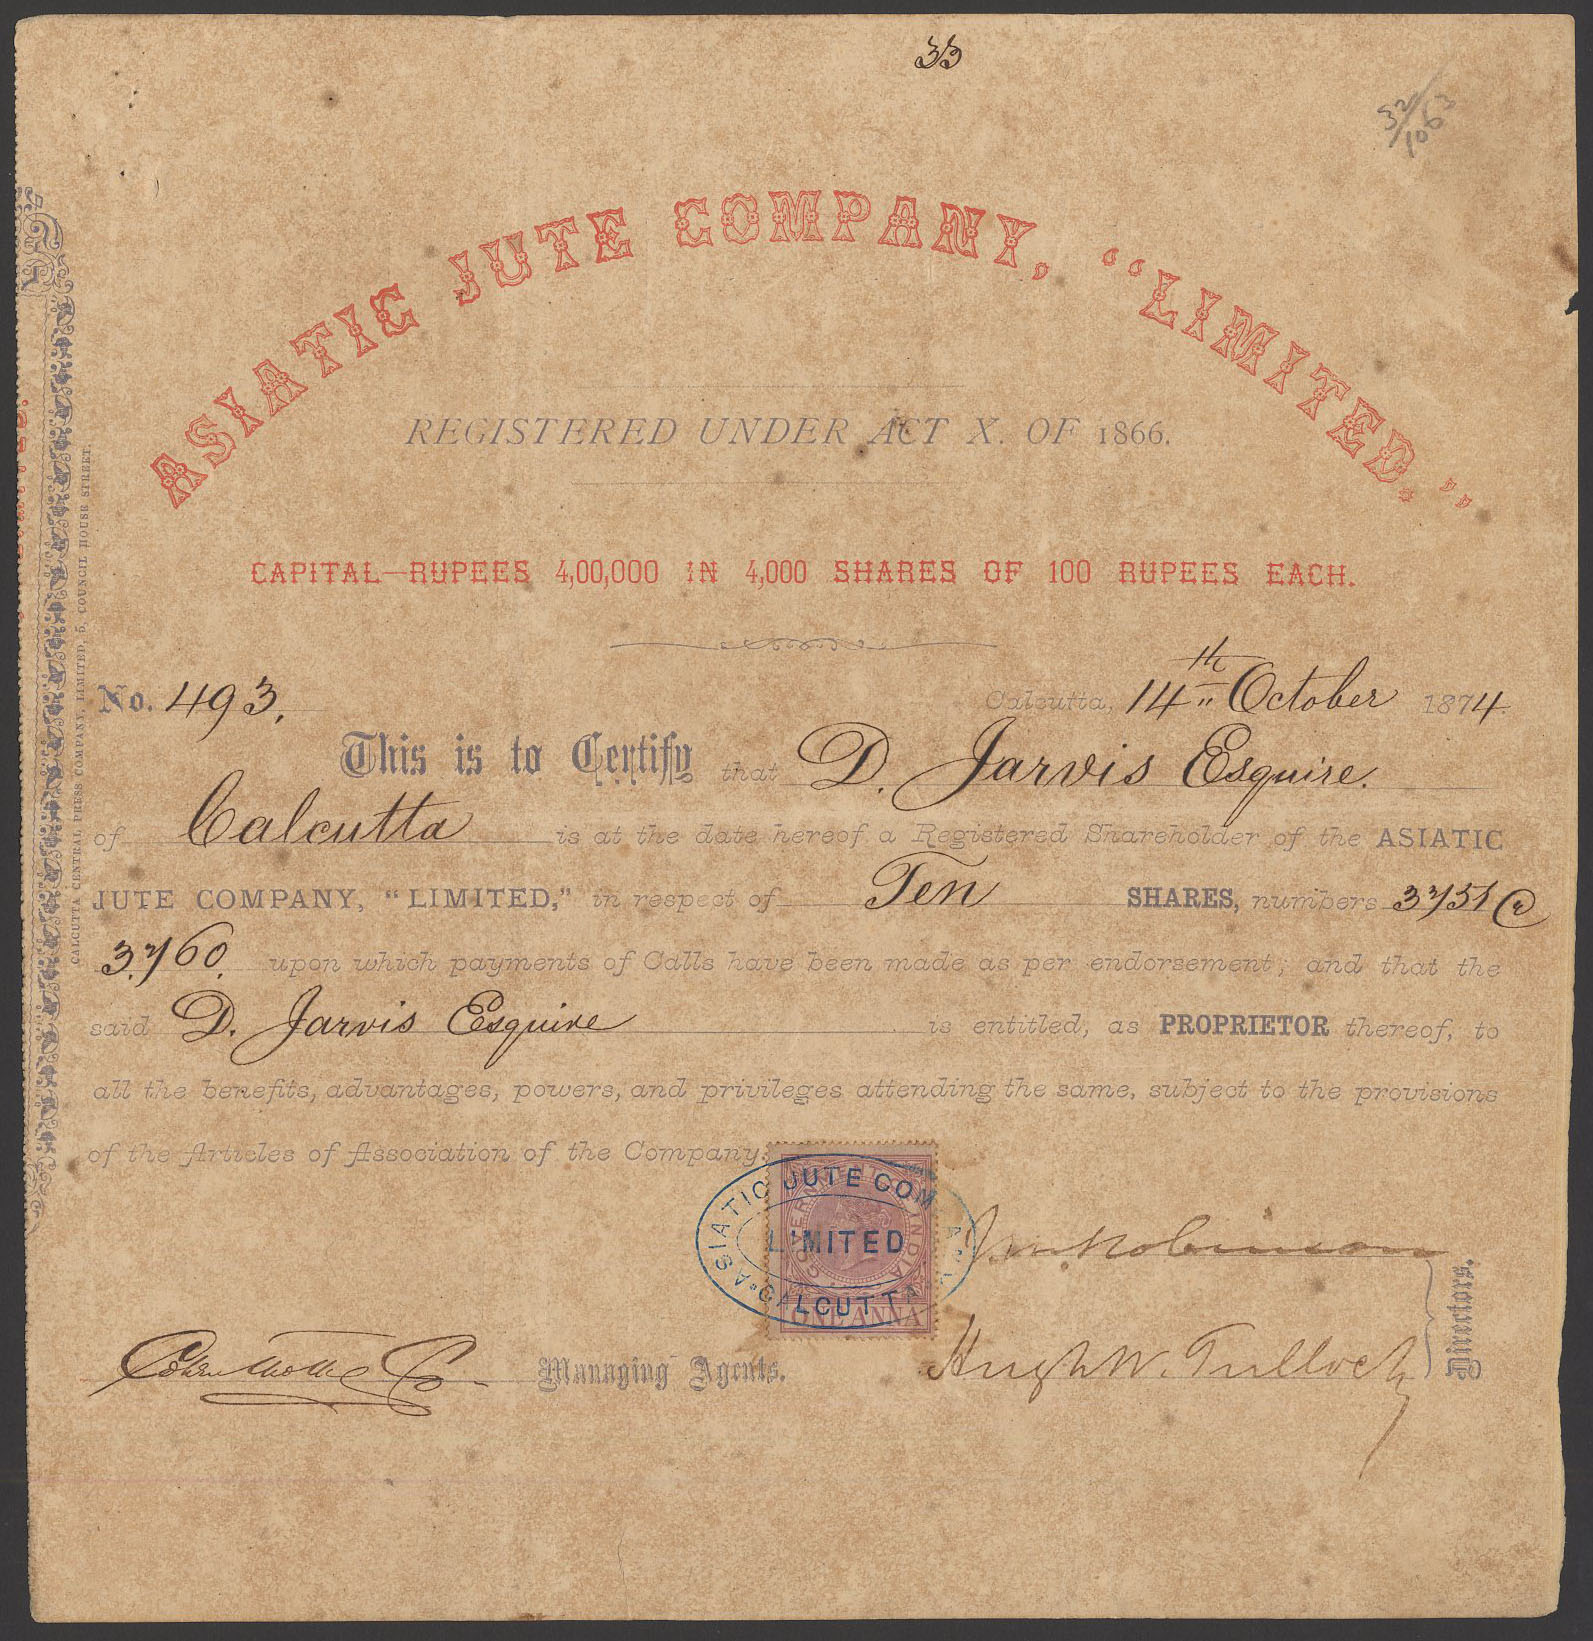 33
32/1063
ASIATIC JUTE COMPANY, "LIMITED."
REGISTERED UNDER ACT X. OF 1866.
CAPITAL—RUPEES 4,00,000 IN 4,000 SHARES OF 100 RUPEES EACH.
No. 493.
Calcutta, 14th October 1874.
This is to Certify that D. Jarvis Esquire.
of Calcutta is at the date hereof a Registered Shareholder of the ASIATIC
JUTE COMPANY, "LIMITED," in respect of Ten SHARES, numbers 3751 @
3760. upon which payments of Calls have been made as per endorsement; and that the
said D. Jarvis Esquire is entitled, as PROPRIETOR thereof, to
all the benefits, advantages, powers, and privileges attending the same, subject to the provisions
of the Articles of Association of the Company.
GOVERNMENT OF INDIA
ONE ANNA
ASIATIC JUTE COMPANY
LIMITED
CALCUTTA
Robinson
Hugh W. Tulloch
Directors.
& Co Managing Agents.
CALCUTTA CENTRAL PRESS COMPANY, LIMITED, 5, COUNCIL HOUSE STREET.